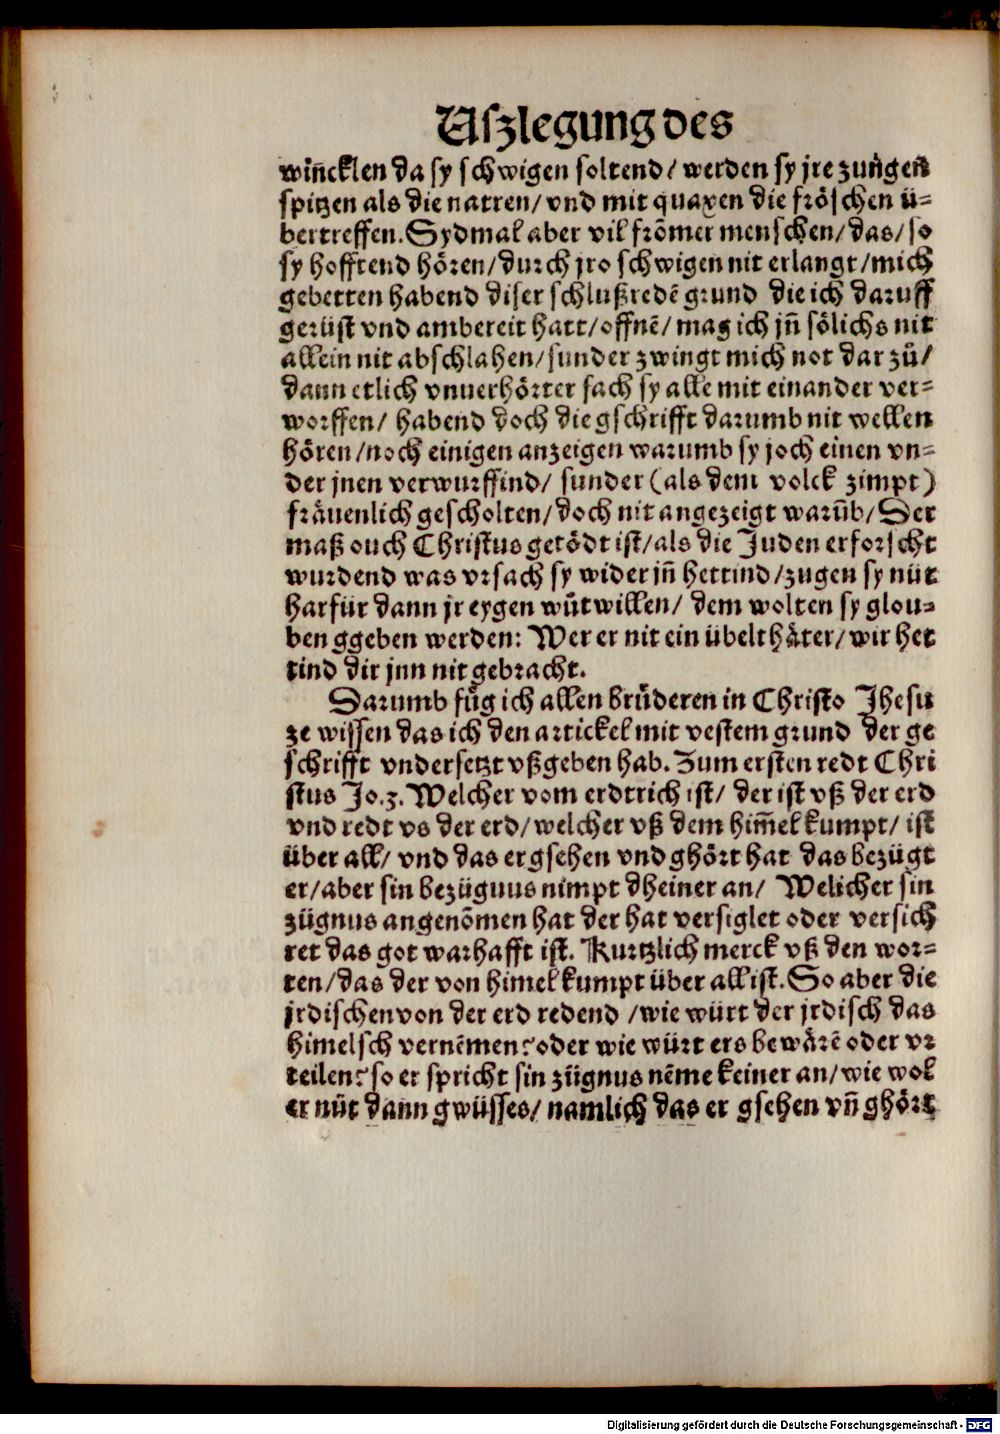 Uſzlegung des
wiñcklen da sy schwigen soltend/ werden sy jre zungen
spitzen als die natren/ vnd mit quaxen die fröschen ü-
bertreffen. Sydmal aber vil frõmer menschen/ das/ so
sy hofftend hören/ durch jro schwigen nit erlangt/ mich
gebetten habend diser schlußredẽ grund die ich daruff
gerüst vnd ambereit hatt/ offnẽ/ mag ich jñ sölichs nit
allein nit abschlahen/ sunder zwingt mich not dar zů/
dann etlich vnuerhörter sach sy alle mit einander ver-
worffen/ habend doch die gschrifft darumb nit wellen
hören/ noch einigen anzeigen warumb sy joch einen vn-
der jnen verwurffind/ sunder (als dem volck zimpt)
fräuenlich gescholten/ doch nit angezeigt warũb/ Der
maß ouch Christus getödt ist/ als die Juden erforscht
wurdend was vrsach sy wider jñ hettind/ zugen sy nüt
harfür dann jr eygen můtwillen/ dem wolten sy glou-
ben ggeben werden: Wer er nit ein übelthäter/ wir het
tind dir jnn nit gebracht.
Darumb fůg ich allen brůderen in Christo Jhesu
ze wissen das ich den artickel mit vestem grund der ge
schrifft vndersetzt vßgeben hab. Zum ersten redt Chri
stus Jo.3. Welcher vom erdtrich ist/ der ist vß der erd
vnd redt vs der erd/ welcher vß dem him̃el kumpt/ ist
über all/ vnd das er gsehen vnd ghört hat das bezügt
er/ aber sin bezügnus nimpt dheiner an/ Welicher sin
zügnus angenõmen hat der hat versiglet oder versich
ret das got warhafft ist. Kurtzlich merck vß den wor-
ten/ das der von himel kumpt über all ist. So aber die
jrdischen von der erd redend/ wie würt der jrdisch das
himelsch vernẽmen? oder wie würt ers bewärẽ oder vr
teilen? so er spricht sin zügnus nẽme keiner an/ wie wol
er nüt dann gwüsses/ namlich das er gsehen vñ ghört
Digitalisierung gefördert durch die Deutsche Forschungsgemeinschaft - DFG